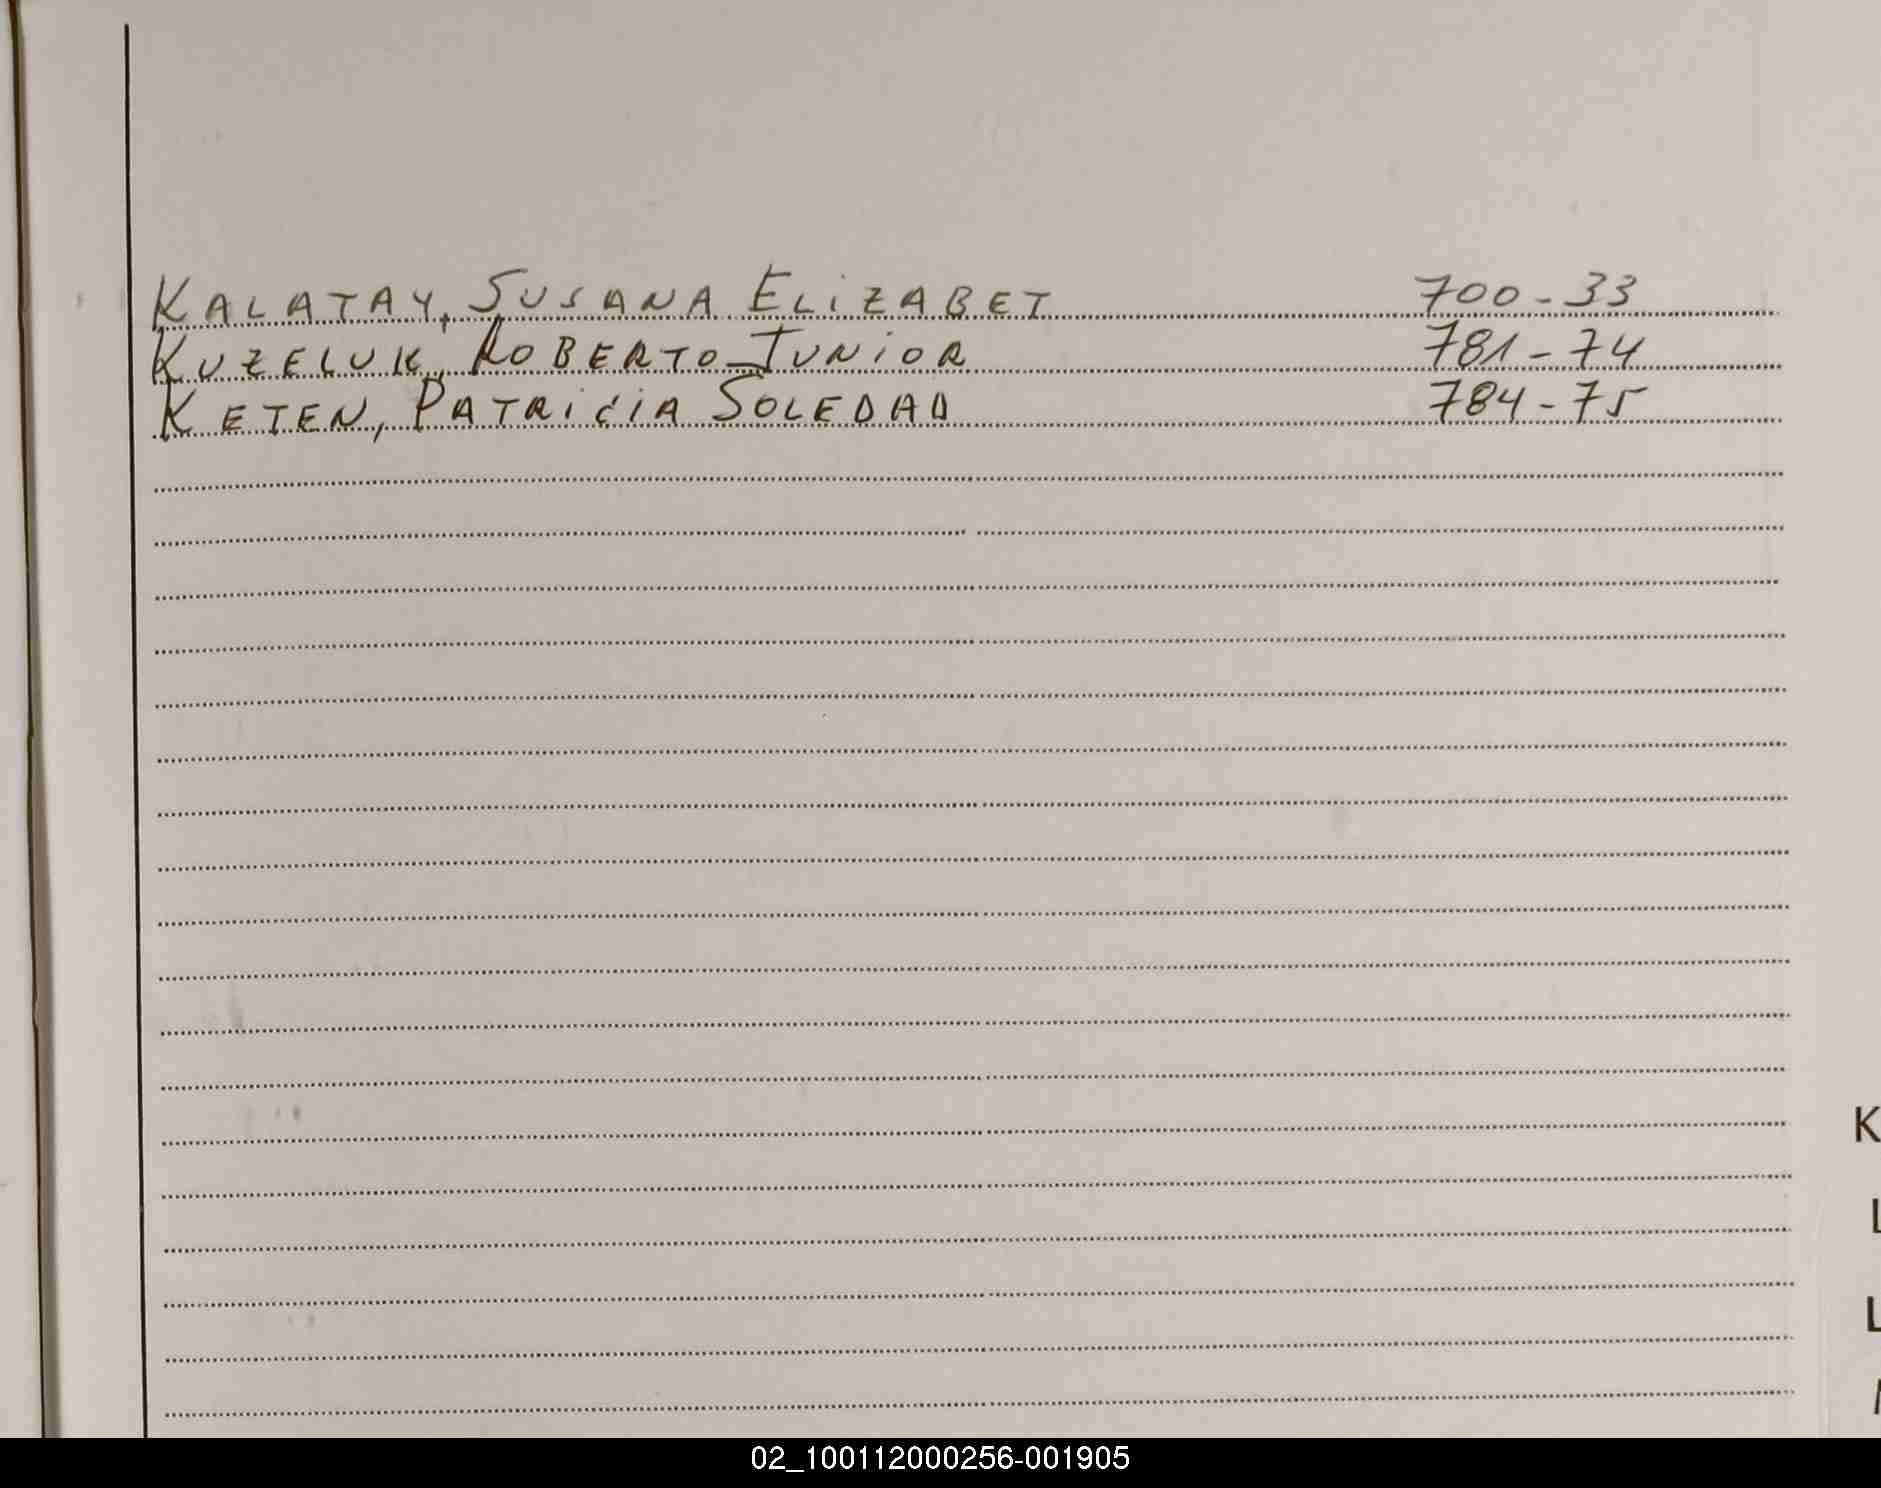 KALATAY, SUSANA ELIZABET 700-33
KUZELUK, ROBERTO JUNIOR 781-74
KETEN, PATRICIA SOLEDAD 784-75
K
L
L
02_100112000256-001905